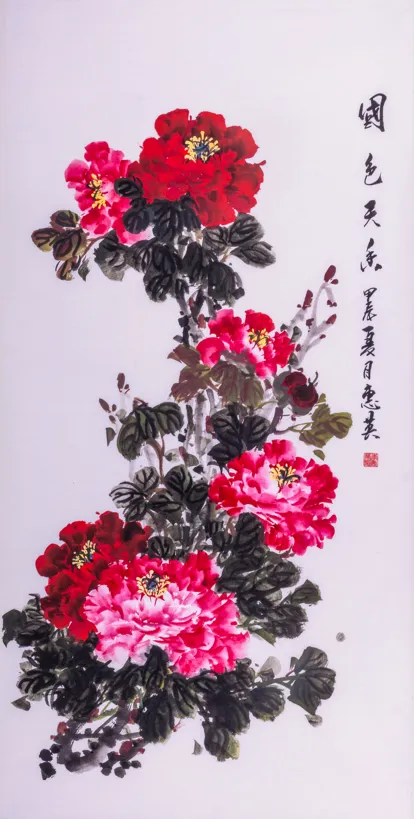 國色天香 甲辰夏月惠英